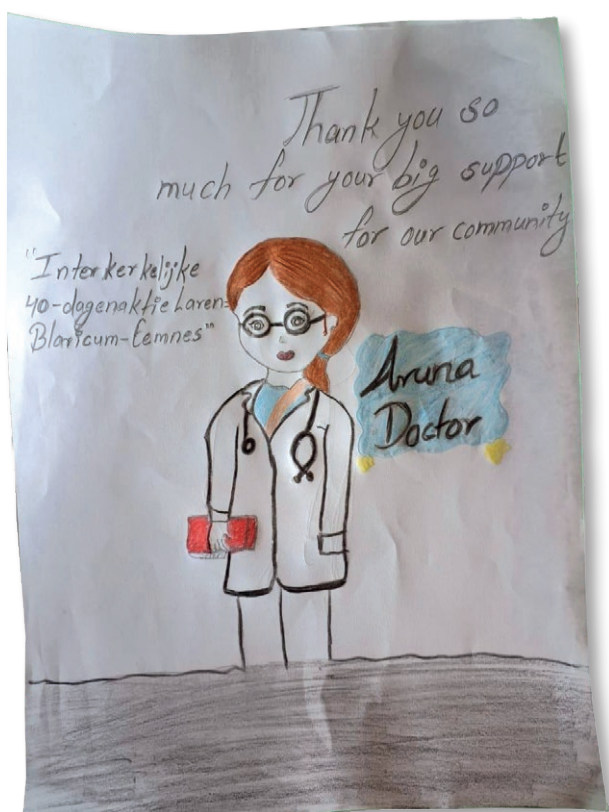 Thank you so
much for your big support
for our community
"Interkerkelijke
40-dagenaktie Laren-
Blaricum-Eemnes"
Aruna
Doctor